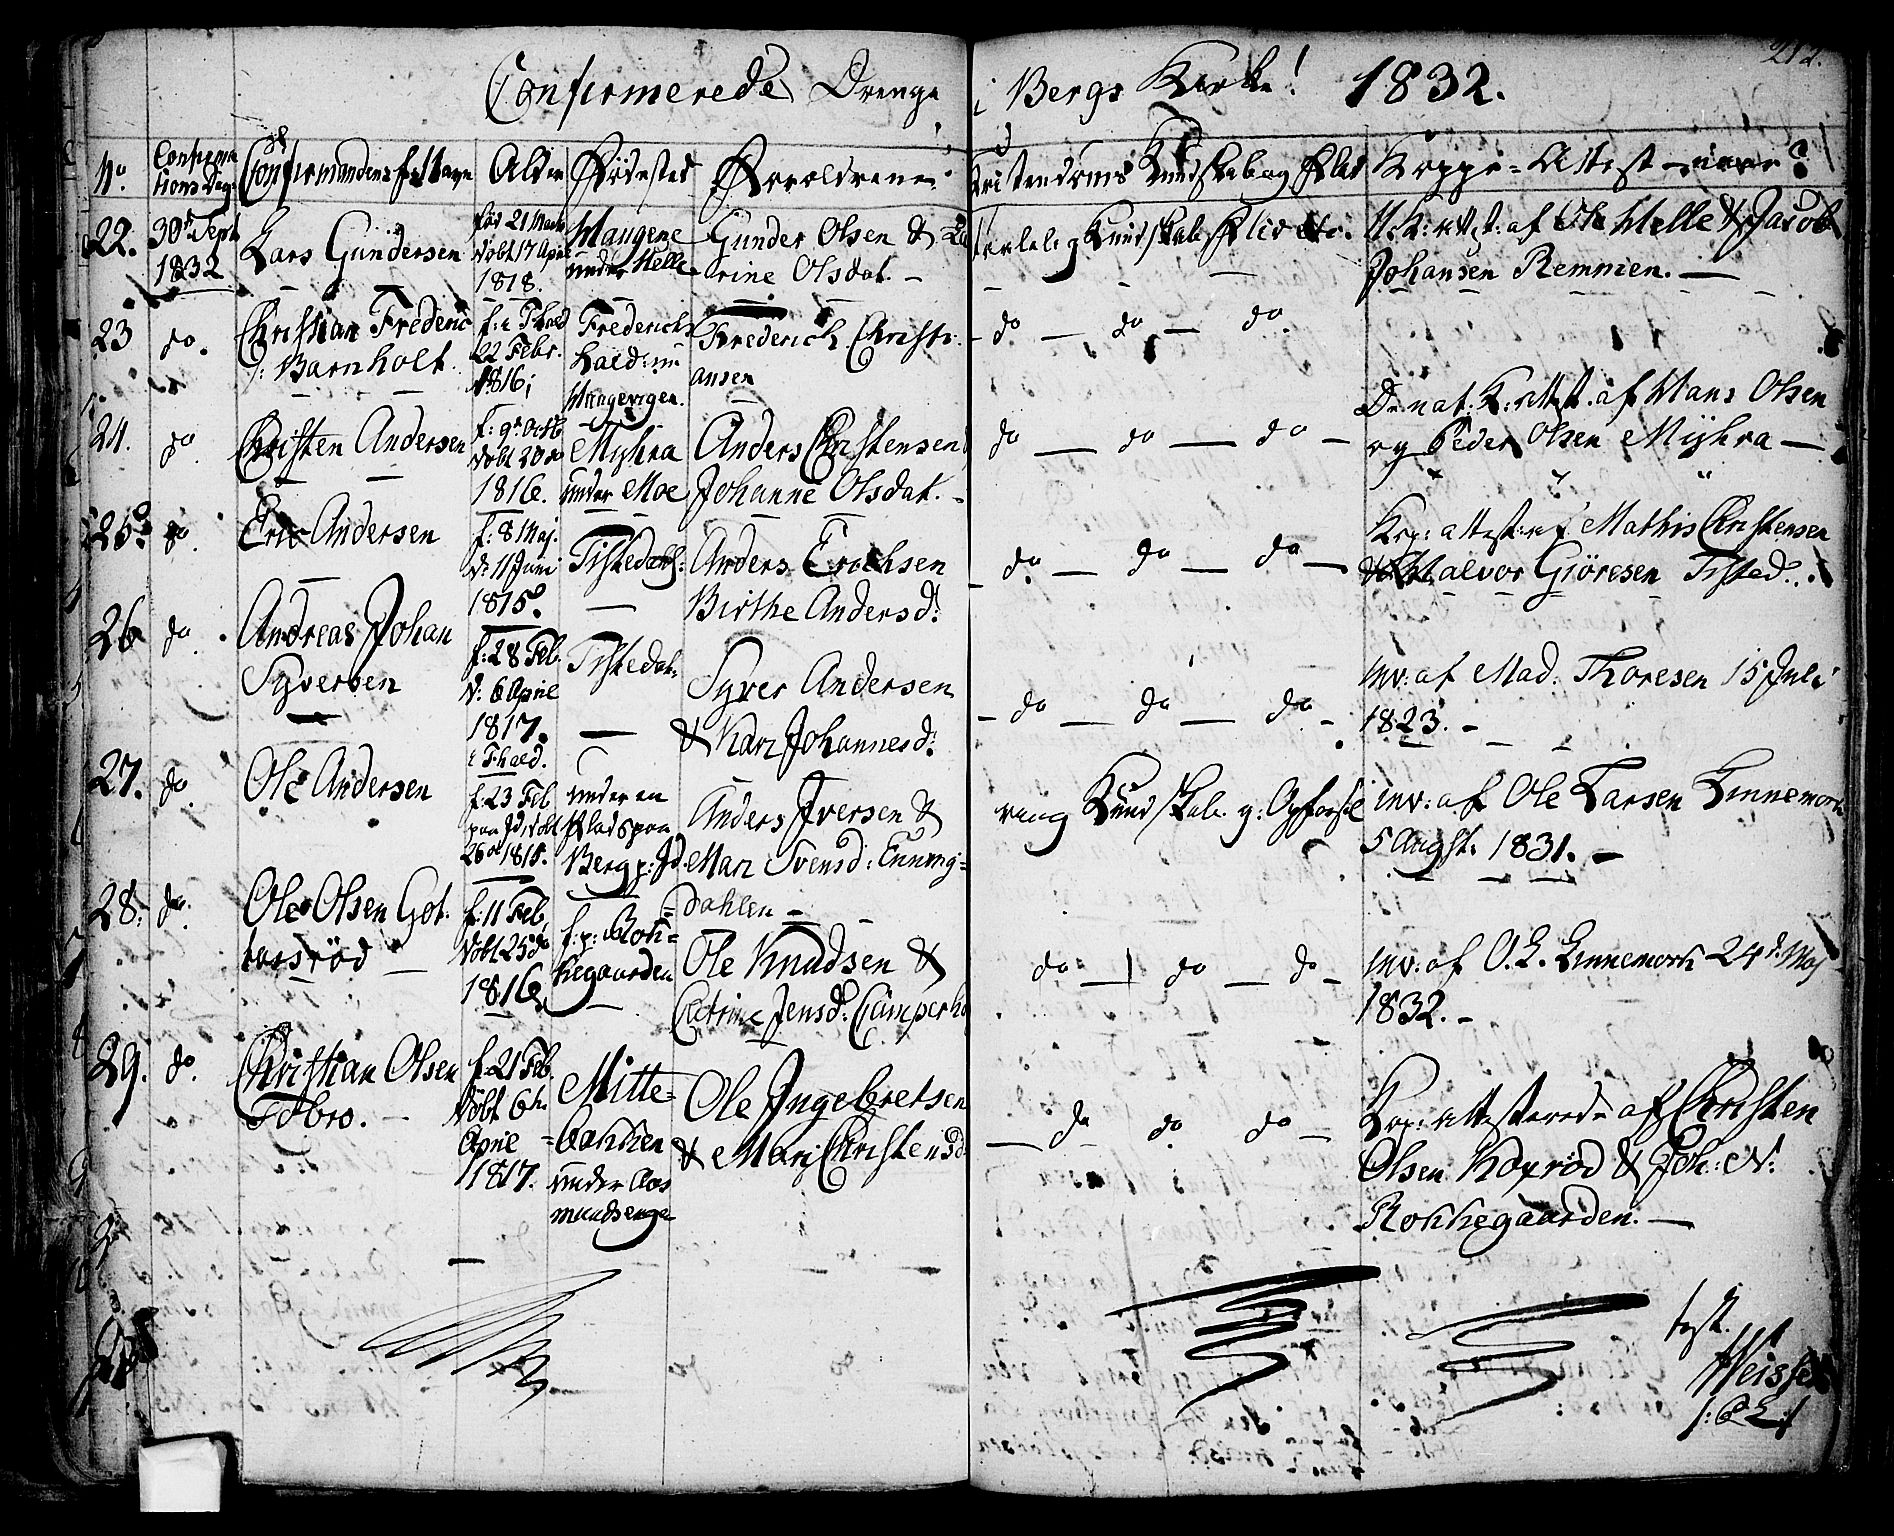 212.
Confirmerede Drenge i Bergs Kirke! 1832.
No. Confirma
tions Dag
Confirmandens fulde Navn Alder Fødested Forældrene Christendoms Kundskab og Flid Koppe-Attest
22. 30te Sept
1832
Lars Gundersen
fød 21 Marts
døbt 17 April
1818.
Haugene
under Helle
Gunder Olsen &
rine Olsdat. –
Kundskab, Flid
V. K: attest: af Ole Helle & Jacob
Johansen Remmen. —
23 do.
Christian Frederic
Barnholt
f: i Fhald
22 Febr.
1816;
Frederichs
hald: nu
Frederich Christi
ansen
do — do — do.
24. do
Christen Andersen
f: 9de Octb
døbt 20 do
1816.
Myhra
under Moe
Anders Christensen
Johanne Olsdat. -
do — do — do –
K: attest. af Hans Olsen
og Peder Olsen Myhra —
25. do.
Eric Andersen
f: 8 Maj.
d: 11 Juni
1815.
Tistedals:
Anders Erichsen
Birthe Andersd:
do — do — do —
Kop: attest: af Mathis Christensen
Halvor Giøresen Tisted.
26 do.
Andreas Johan
Syversen
f: 28 Feb.
d: 6 April
1817.
i Fhald.
Tistedal.
Syver Andersen
& Kari Johannesd:
– do — do — do –
inv: af Mad: Thoresen 15 Juli
1823. –
27. do.
Ole Andersen
f: 23 Feb
paa Id, døbt
26de 1815.
under en
Plads paa
Berg p: Id.
Anders Iversen &
Mari Svensd:
dahlen –
ring Kundskab. g: Opførsel
inv: af Ole Larsen Linnemork
5 Augst. 1831. –
28. do.
Ole Olsen Got
f: 11 Feb,
døbt 25 do
1816,
f: p: Rok=
kegaarden
Ole Knudsen &
Catrine Jensd:
do — do — do –
inv: af O. L. Linnemork 24d Maj
1832. –
29. do.
Christian Olsen
f: 21 Feb.
døbt 6te
April
1817.
Mitte=
=bakken
under Aas
mundsenge
Ole Ingebretsen
& Mari Christensd:
— do do do —
Kop: attesterede af Christen
Olsen & Joh: N:
Rokkegaarden. —
test.